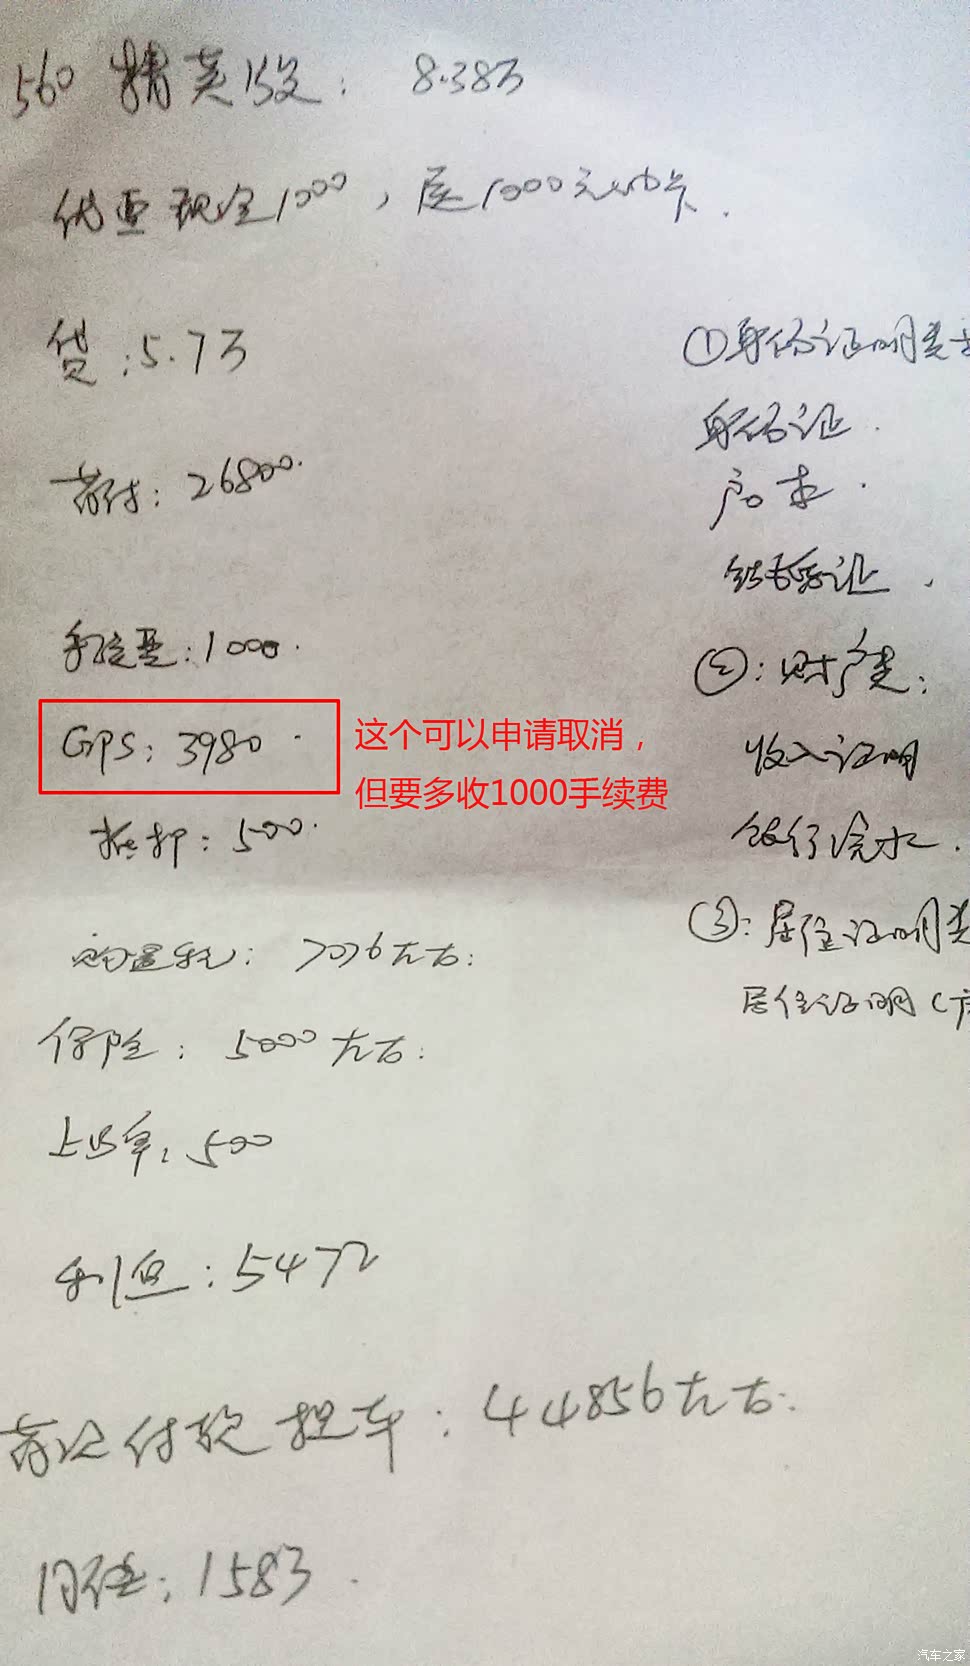 560 精英版: 8.38万
优惠现金1000, 送1000元油卡.
贷: 5.7万
首付: 26800.
手续费: 1000.
GPS: 3980.
这个可以申请取消，
但要多收1000手续费
抵押: 500.
购置税: 7076左右.
保险: 5000左右.
上牌: 500
利息: 5472
首次付款提车: 44856左右.
月供: 1583.
①身份证明类
身份证.
户口本.
结婚证.
②: 财产类:
收入证明
银行流水.
③: 居住证明类
居住证明(房
汽车之家